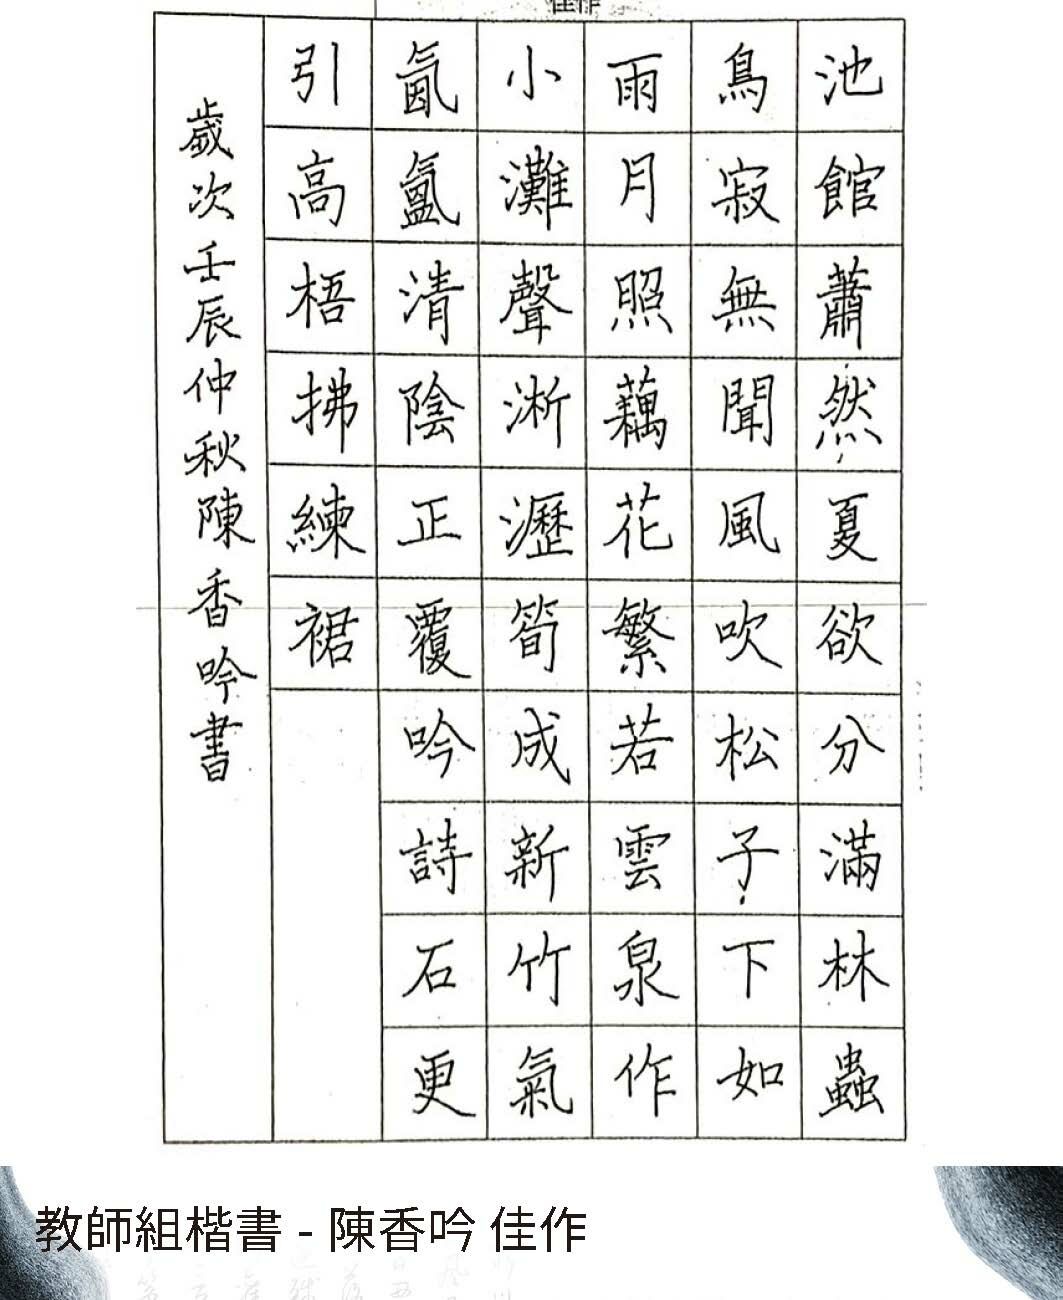 佳作
池館蕭然夏欲分滿林蟲
鳥寂無聞風吹松子下如
雨月照藕花繁若雲泉作
小灘聲淅瀝筍成新竹氣
氤氳清陰正覆吟詩石更
引高梧拂練裙
歲次壬辰仲秋陳香吟書
教師組楷書 - 陳香吟 佳作